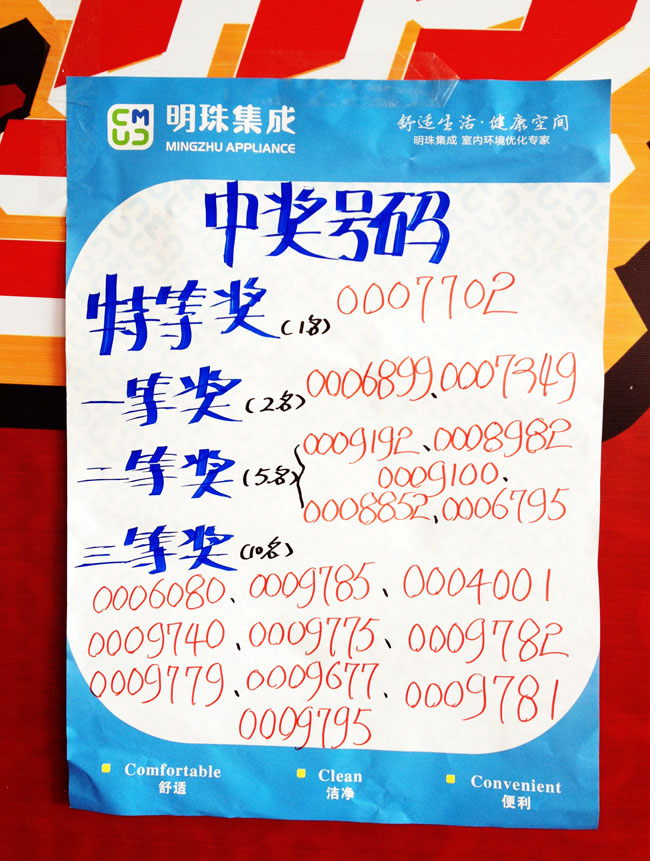 CMJC 明珠集成 舒适生活·健康空间
MINGZHU APPLIANCE 明珠集成 室内环境优化专家
中奖号码
特等奖(1名) 0007702
一等奖(2名) 0006899、0007349
二等奖(5名) 0009192、0008982
0009100、
0008852、0006795
三等奖(10名)
0006080、0009785、0004001
0009740、0009775、0009782
0009779、0009677、0009781
0009795
Comfortable Clean Convenient
舒适 洁净 便利